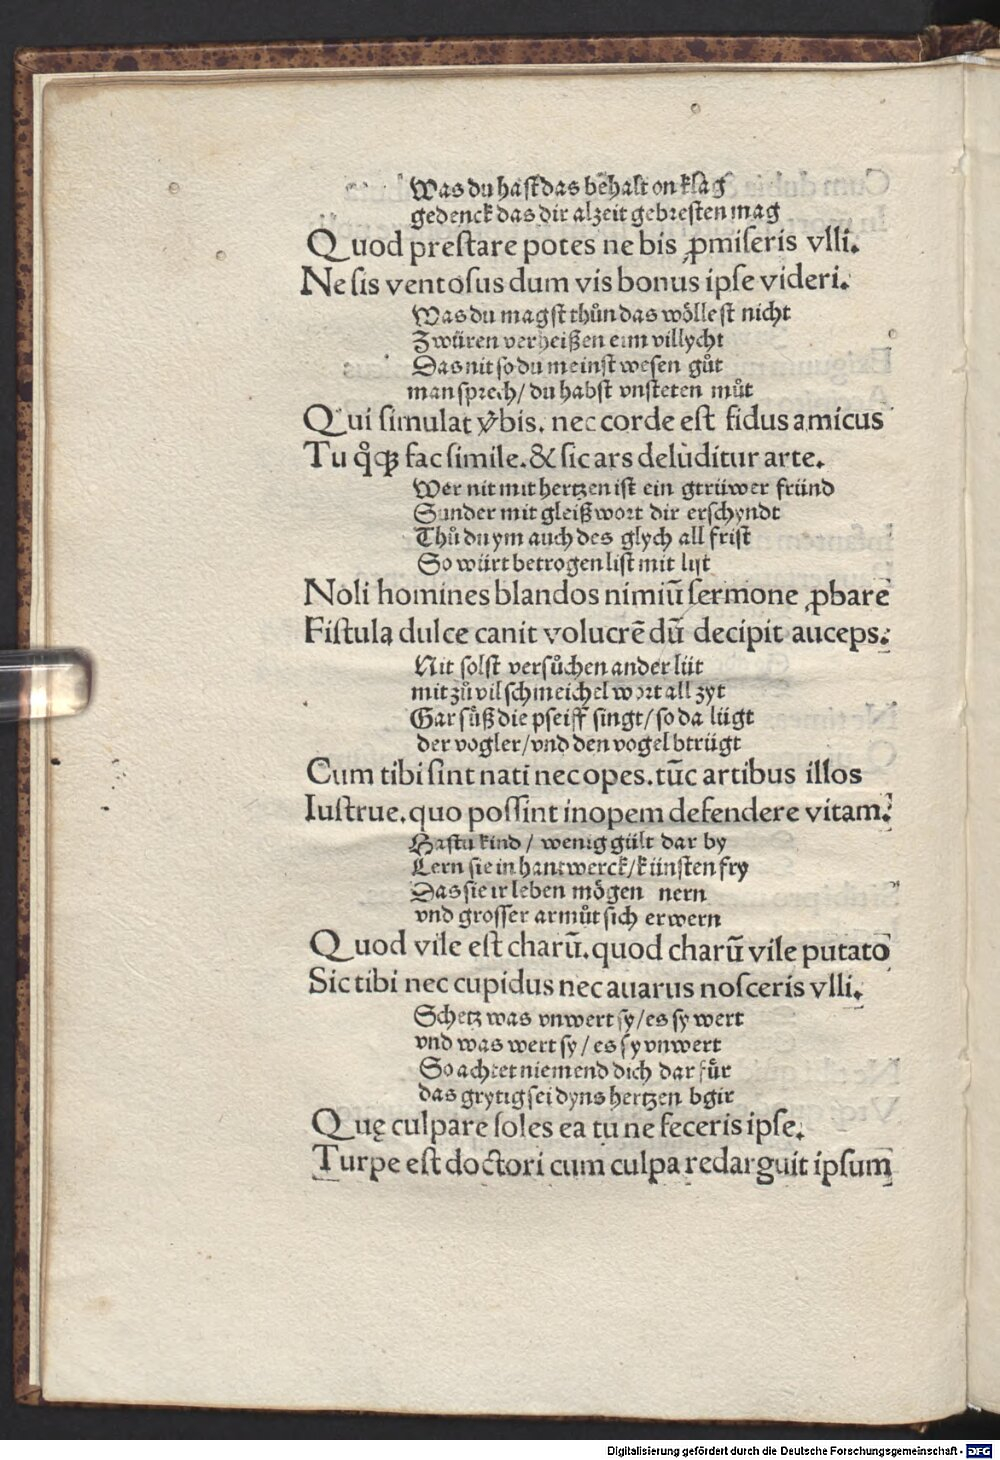 Was du hast das behalt on klag
gedenck das dir alzeit gebresten mag
Quod prestare potes ne bis ꝓmiseris vlli.
Ne sis ventosus dum vis bonus ipse videri.
Was du magst thůn das wöllest nicht
Zwüren verheißen eim villycht
Das nit so du meinst wesen gůt
man sprech/ du habst vnsteten můt
Qui simulat v̄bis. nec corde est fidus amicus
Tu qͦqꝫ fac simile. & sic ars deluditur arte.
Wer nit mit hertzen ist ein gtrüwer fründ
Sunder mit gleiß wort dir erschyndt
Thů du ym auch des glych all frist
So würt betrogen list mit list
Noli homines blandos nimiū sermone ꝓbare
Fistula dulce canit volucrē dū decipit auceps.
Nit solst versůchen ander lüt
mit zů vil schmeichel wort all zyt
Gar sůß die pfeiff singt/ so da lügt
der vogler/ vnd den vogel btrügt
Cum tibi sint nati nec opes. tūc artibus illos
Iustrue. quo possint inopem defendere vitam.
Hastu kind / wenig gült dar by
Lern sie in hantwerck/ künsten fry
Das sie ir leben mögen nern
vnd grosser armůt sich erwern
Quod vile est charū. quod charū vile putato
Sic tibi nec cupidus nec auarus nosceris vlli.
Schetz was vnwert sy/ es sy wert
vnd was wert sy/ es sy vnwert
So achtet niemend dich dar für
das grytig sei dyns hertzen bgir
Quę culpare soles ea tu ne feceris ipse.
Turpe est doctori cum culpa redarguit ipsum
Digitalisierung gefördert durch die Deutsche Forschungsgemeinschaft - DFG